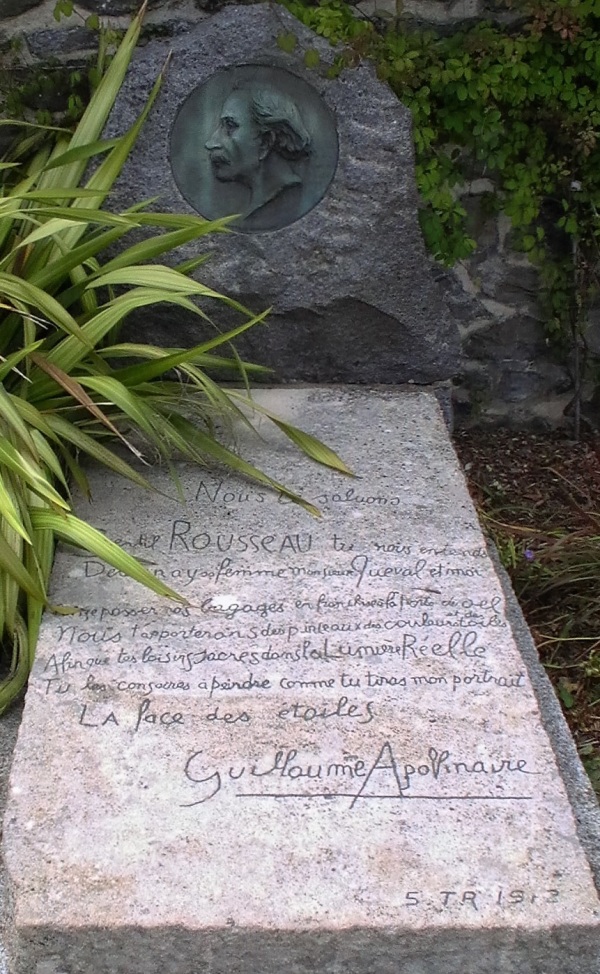 Nous saluons
ROUSSEAU tu nous entends
Delaunay sa femme monsieur Queval et moi
passer nos bagages en franchise à la porte du ciel
Nous t'apporterons des pinceaux des couleurs et des toiles
Afin que tes loisirs sacres dans la Lumiere Reelle
Tu les consacres a peindre comme tu tiras mon portrait
LA face des etoiles
Guillaume Apollinaire